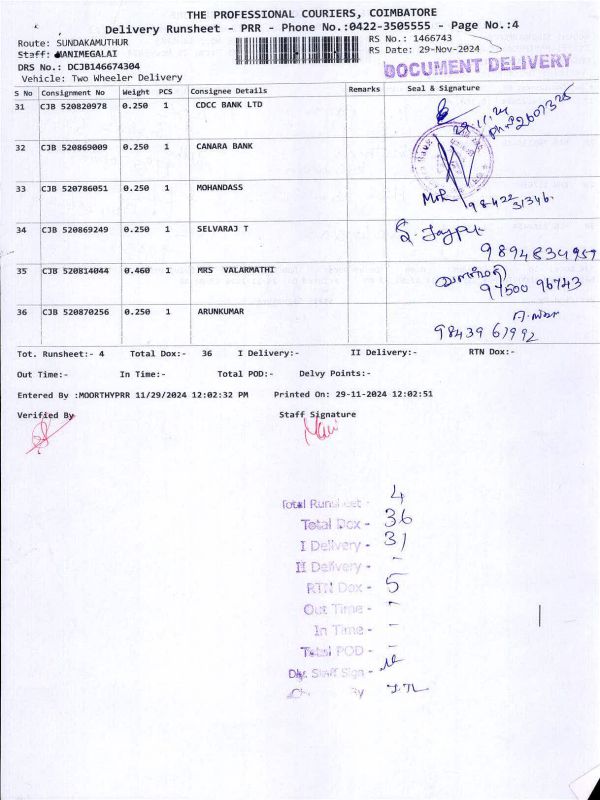 THE PROFESSIONAL COURIERS, COIMBATORE
Delivery Runsheet - PRR - Phone No.:0422-3505555 - Page No.:4
Route: SUNDAKAMUTHUR RS No.: 1466743
Staff: MANIMEGALAI RS Date: 29-Nov-2024
DRS No.: DCJB146674304
Vehicle: Two Wheeler Delivery
DOCUMENT DELIVERY
S No Consignment No Weight PCS Consignee Details Remarks Seal & Signature
31 CJB 520820978 0.250 1 CDCC BANK LTD
29.11.24
32 CJB 520869009 0.250 1 CANARA BANK
33 CJB 520786051 0.250 1 MOHANDASS
98422 31346
34 CJB 520869249 0.250 1 SELVARAJ T
9894834959
35 CJB 520814044 0.460 1 MRS VALARMATHI
வளர்மதி
97500 96743
36 CJB 520870256 0.250 1 ARUNKUMAR
98439 61992
Tot. Runsheet:- 4 Total Dox:- 36 I Delivery:- II Delivery:- RTN Dox:-
Out Time:- In Time:- Total POD:- Delvy Points:-
Entered By :MOORTHYPRR 11/29/2024 12:02:32 PM Printed On: 29-11-2024 12:02:51
Verified By Staff Signature
Mani
Total Runsheet - 4
Total Dox - 36
I Delivery - 31
II Delivery - -
RTN Dox - 5
Out Time - -
In Time - -
Total POD - -
Dly. Staff Sign -
By